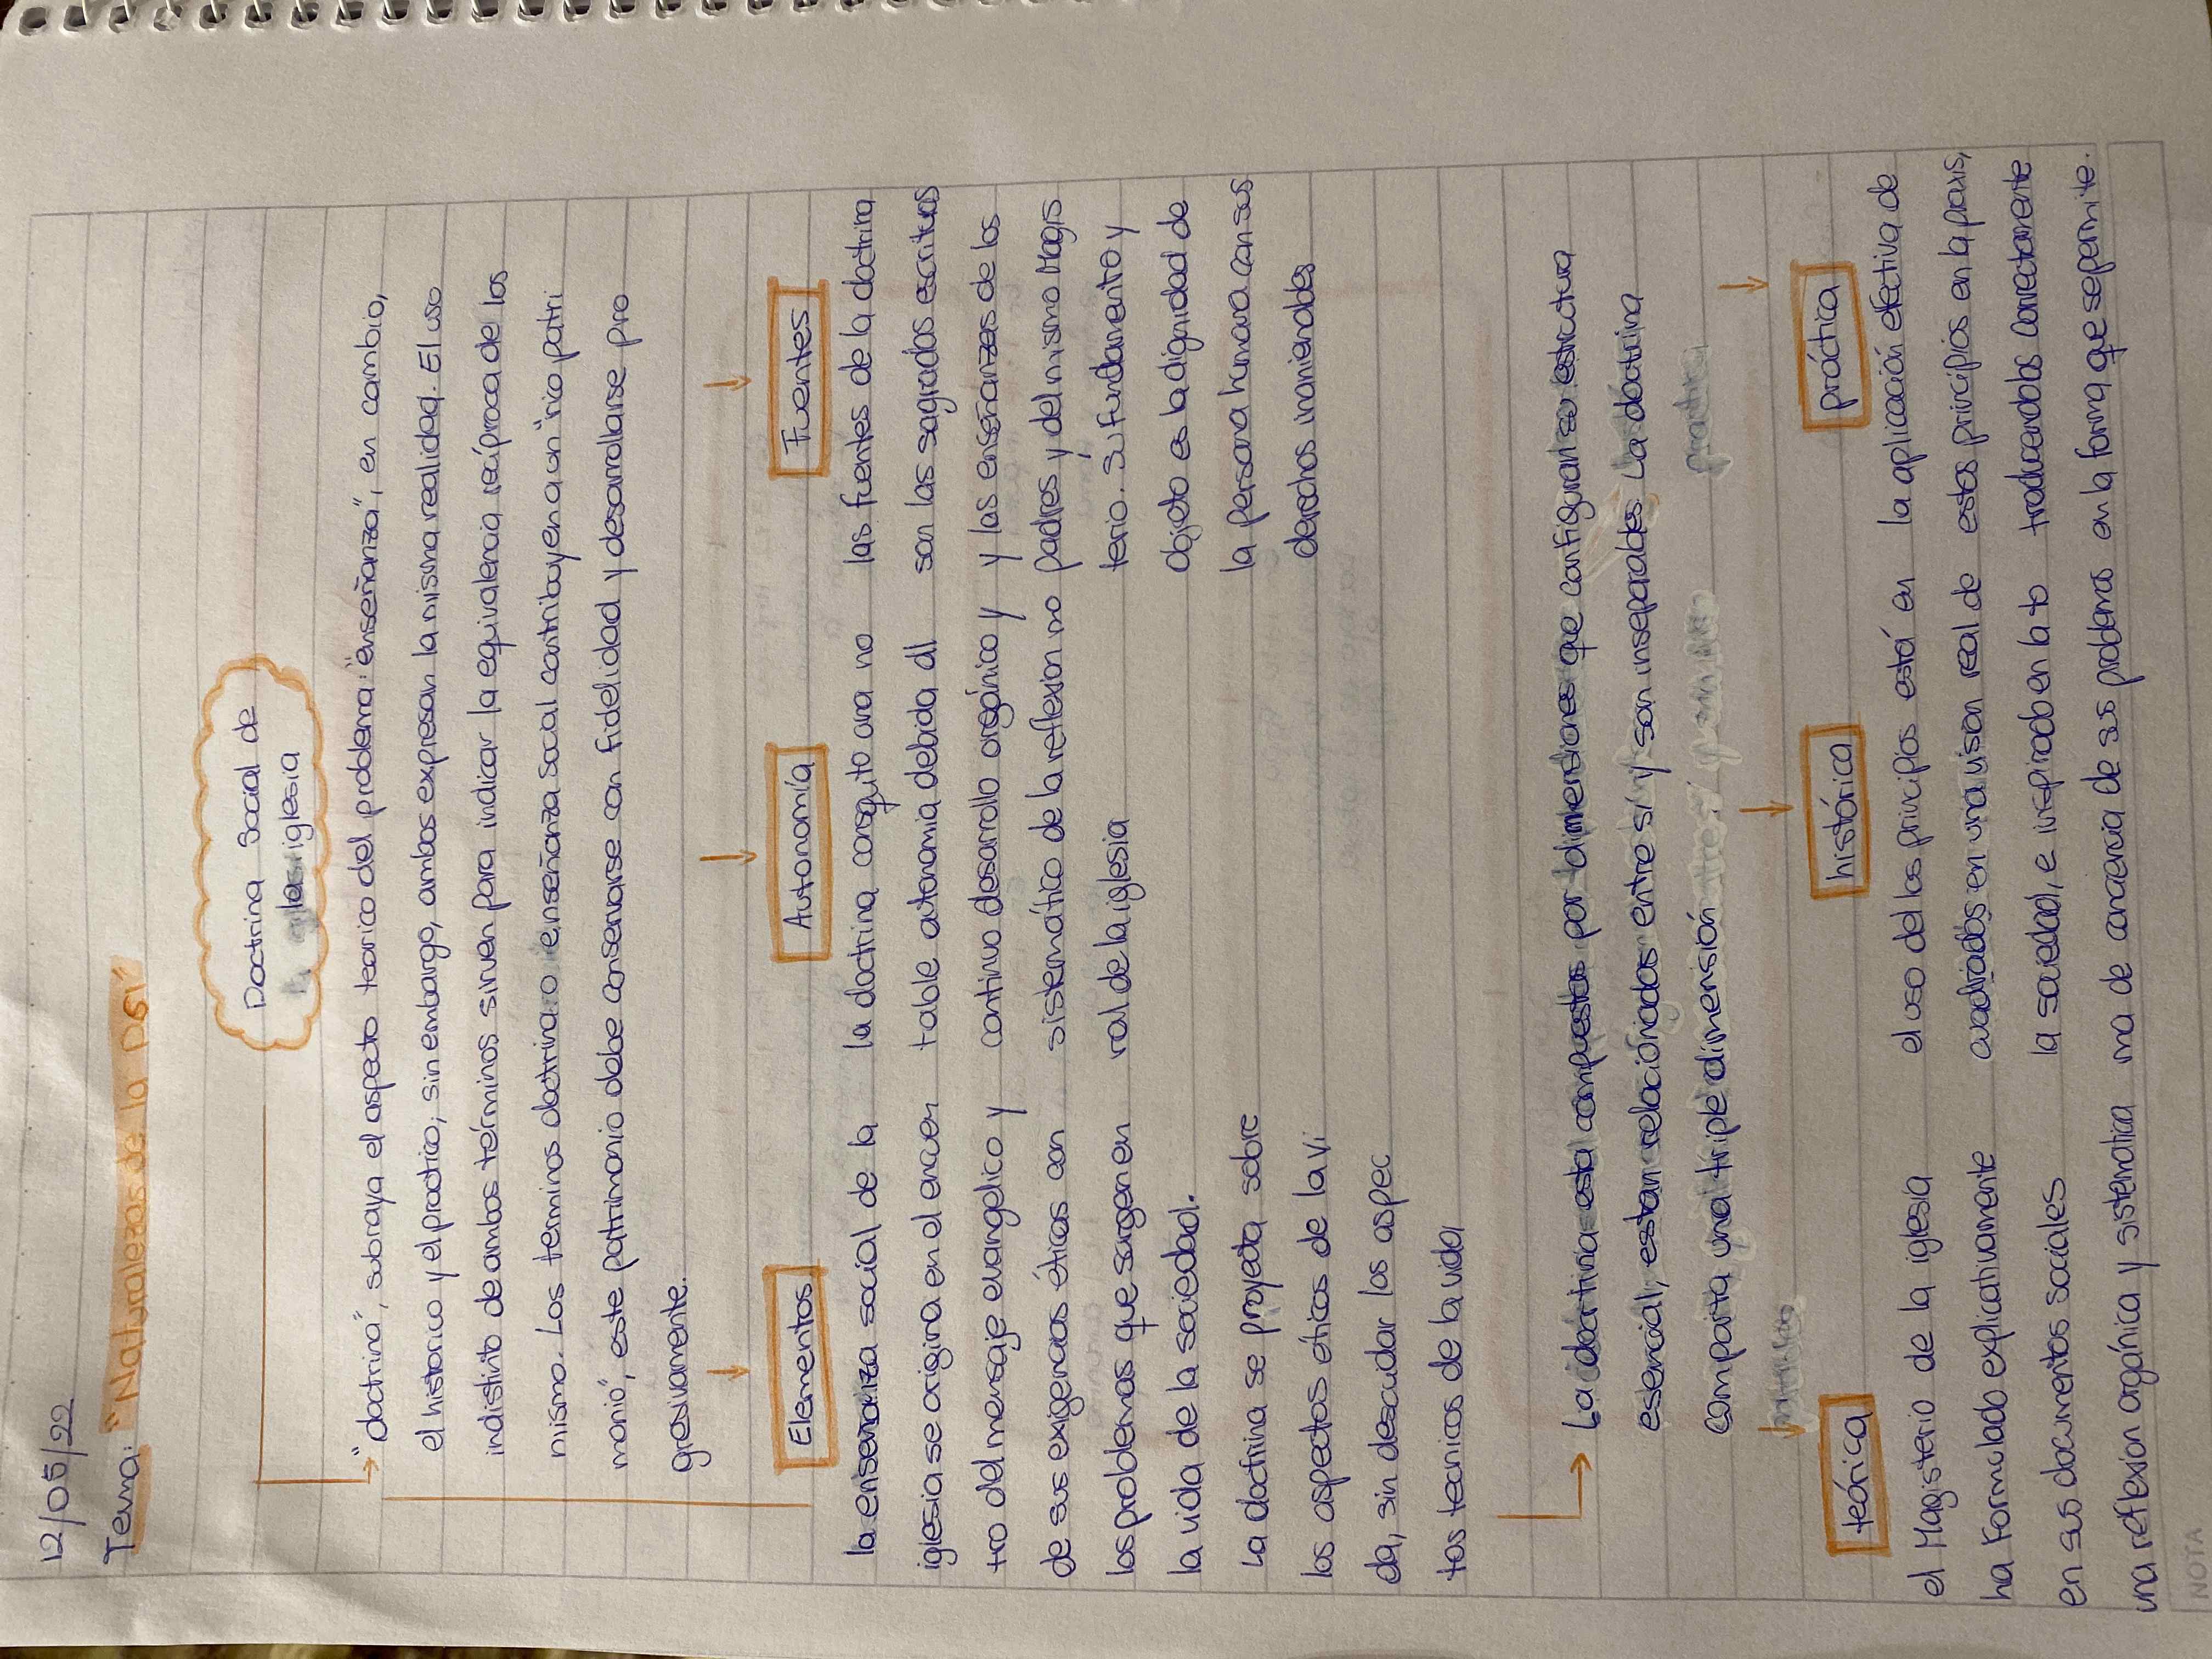 12/05/22
Tema: "Naturalezas de la DSI"
Doctrina Social de
la iglesia
"doctrina", subraya el aspecto teorico del problema: "enseñanza", en cambio,
el historico y el practico; sin embargo, ambos expresan la misma realidad. El uso
indistinto de ambos términos sirven para indicar la equivalencia recíproca de los
mismo. Los terminos doctrina o enseñanza social contribuyen a un "rico patri
monio", este patrimonio debe conservarse con fidelidad y desarrollarse pro
gresivamente.
Elementos
la enseñanza social de la
iglesia se origina en el encuen
tro del mensaje evangelico y
de sus exigencias éticas con
los problemas que surgen en
la vida de la sociedad.
La doctrina se proyecta sobre
los aspectos éticos de la vi
da, sin descuidar los aspec
tos tecnicos de la vida
Autonomía
la doctrina consguito ana no
table autonomia debida al
continuo desarrollo orgánico y
sistemático de la reflexion mo
ral de la iglesia
Fuentes
las fuentes de la doctrina
son las sagradas escrituras
y las enseñanzas de los
padres y del mismo Magis
terio. Su fundamento y
objeto es la dignidad de
la persona humana con sus
derechos inanienables
La doctrina esta compuesta por dimensiones que configuran su estructura
esencial, estan relacionadas entre si y son inseparables. La doctrina
comporta una triple dimensión
teórica
el Magisterio de la iglesia
ha Formulado explicativamente
en sus documentos sociales
una reflexion orgánica y sistematica
histórica
el uso de los principios está en
cuadrados en una vison real de
la sociedad, e inspirado en la to
ma de conciencia de sus problemas
práctica
la aplicación efectiva de
estos principios en la praxis,
traducendolos correctamente
en la forma que se permite.
NOTA